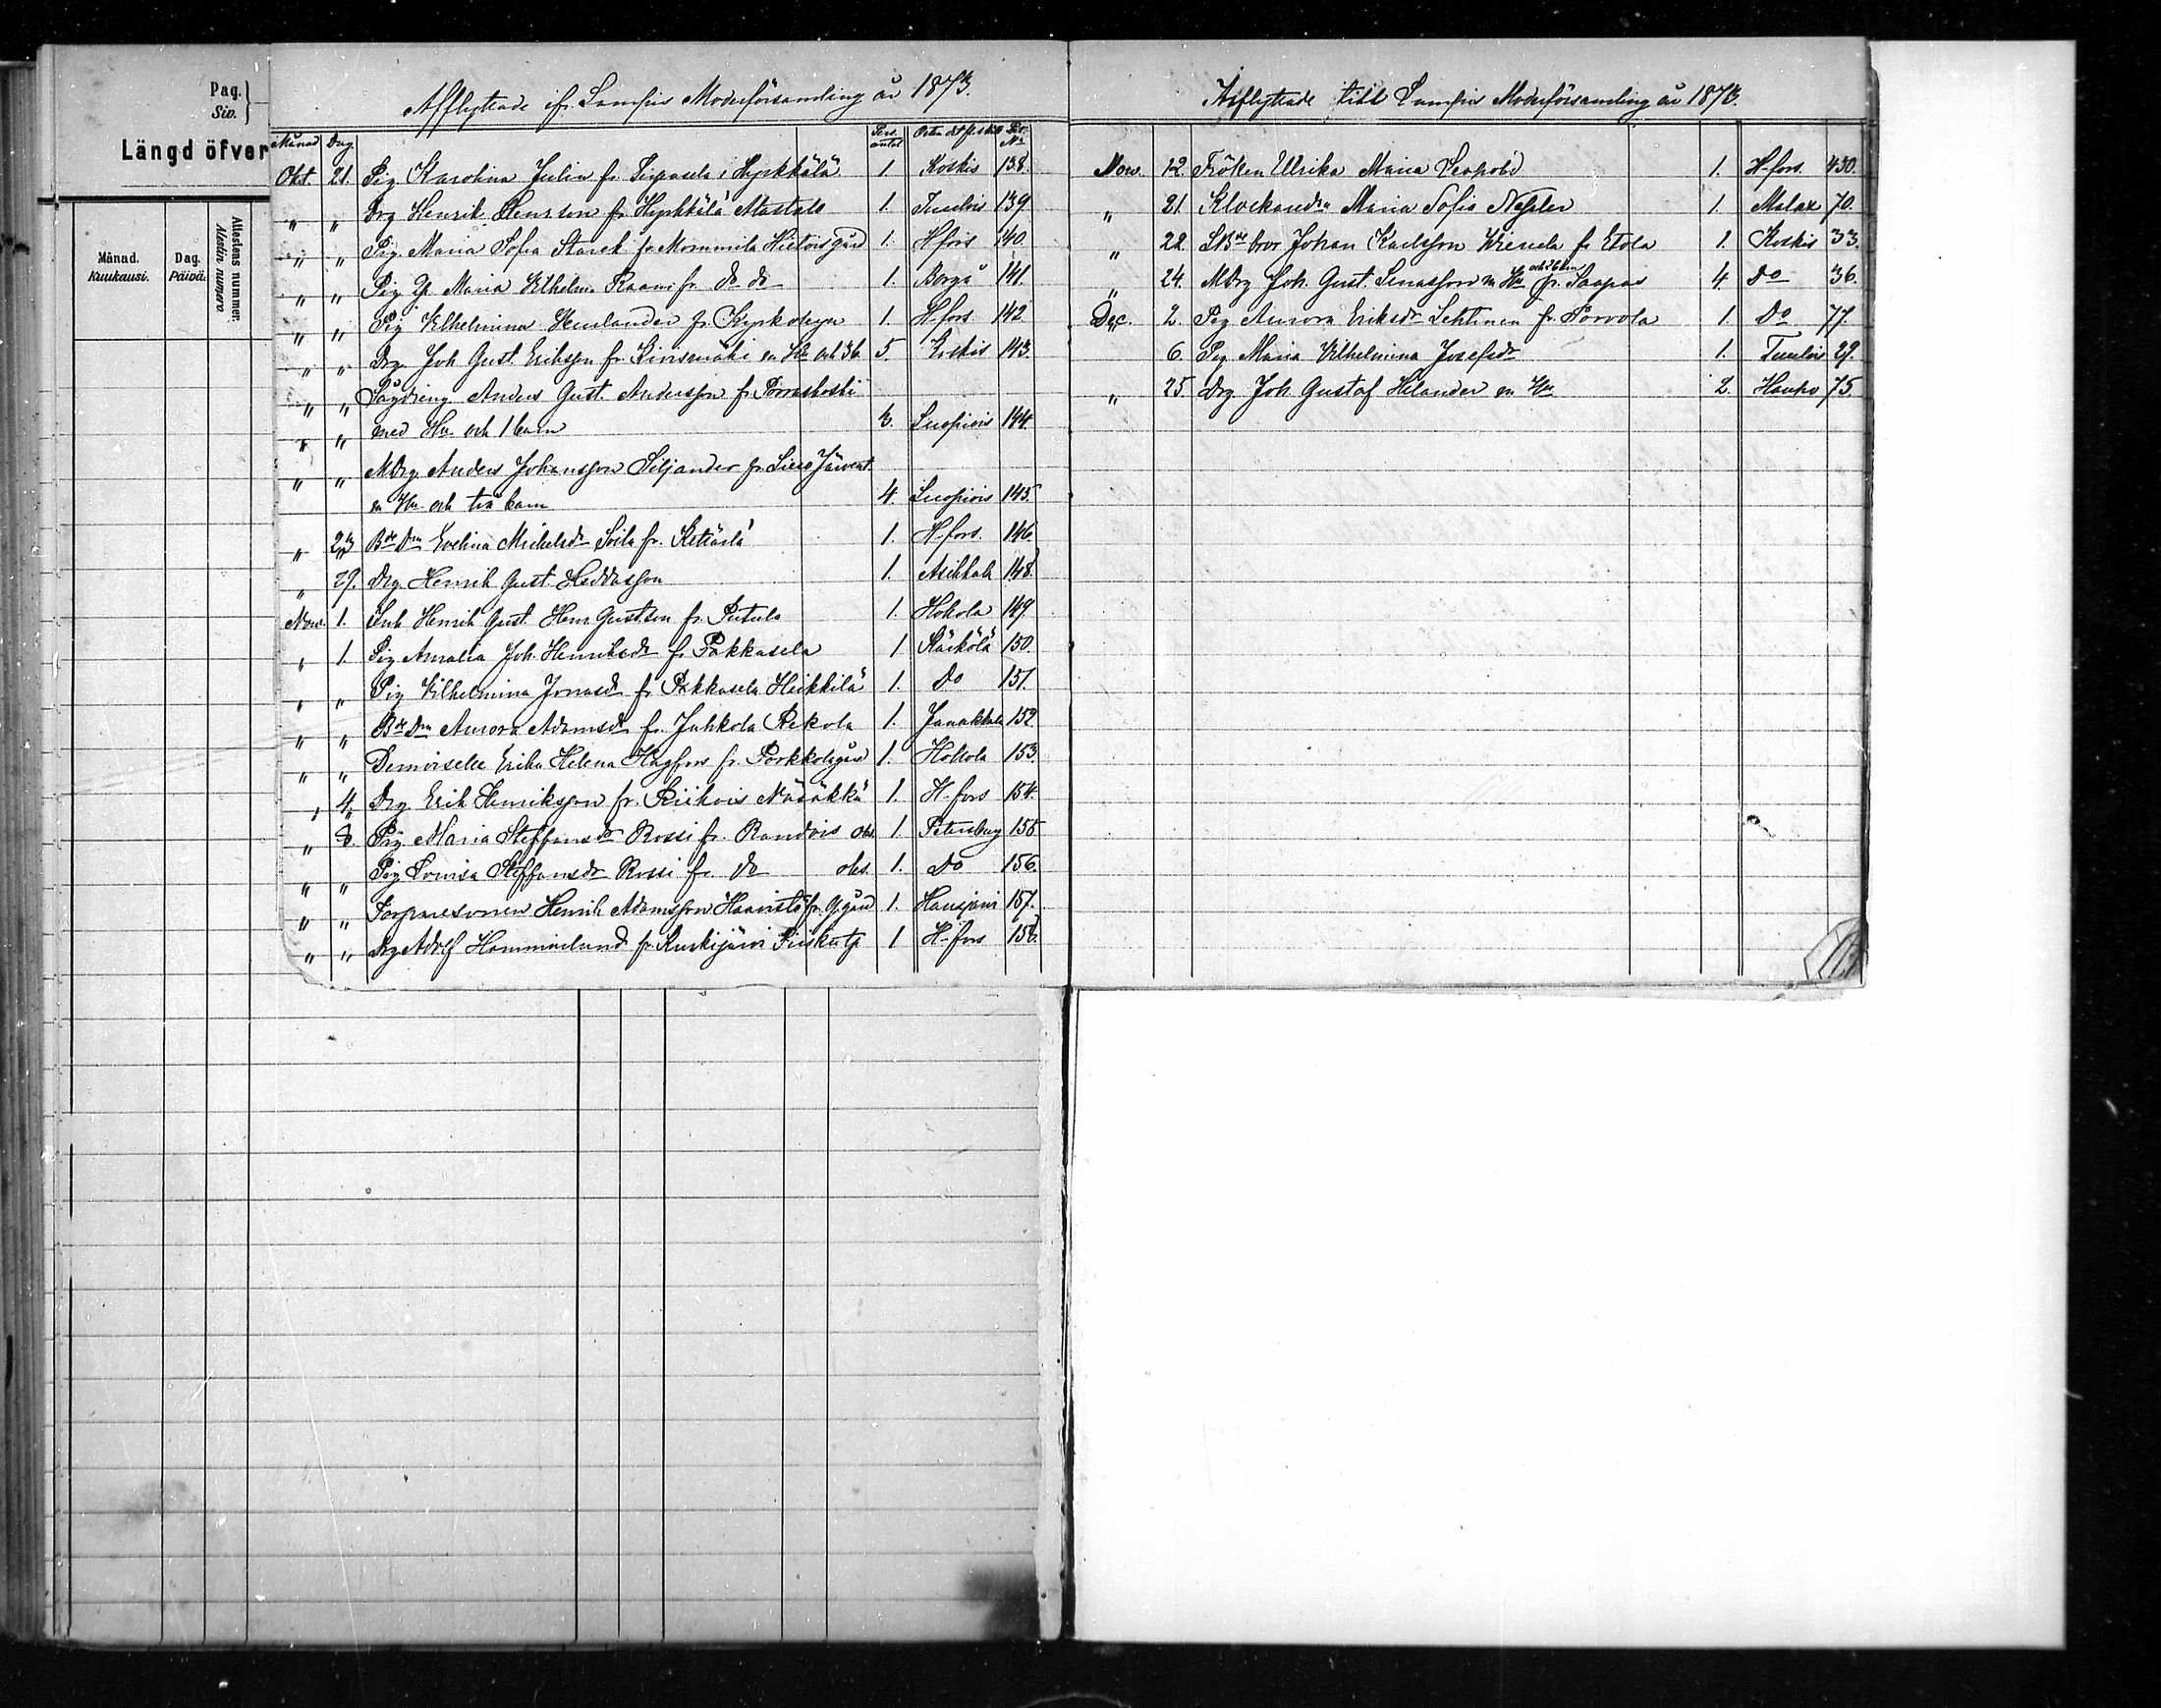 Pag.
Siv.
Längd öfver
Månad.
Kuukausi.
Dag.
Päivä.
Allestäds nummer.
Allestin numero.
Afflyttade ifr. Lampis Moderförsamling år 1873.
Månad Dag Pers. antal Orten dit fr. Bet. No
Okt. 21. Pig Karolina Julia fr. i Hyrkkälä 1 Koskis 138.
" " Drg Henrik Henrson fr. Hyrkkälä Mattala 1. Tuulois 139.
" " Pig. Maria Sofia Starck fr. Mommila Hietois gård 1. H-fors 140.
" " Pig Maria Vilhelm. Raami fr. do do 1. Borgå 141.
" " Pig Vilhelmina Henlander fr. 1. H-fors 142
" " Drg. Joh Gust. Eriksson fr. m Hu och 3 b. 5. Koskis 143.
" " Anders Gust. Andersson fr. Porraskoski
" " med Hu. och 1 barn 3. Luopiois 144.
" " MDrg. Anders Johansson Siljander fr. Lieso Järvent.
m Hu och två barn 4. Luopiois 145.
" 23 Bde Drn Evelina Michelsdr Soila fr. 1. H-fors. 146
" 29. Drg. Henrik Gust. Heddasson 1. Asikkala 148.
Nov. 1. Inh Henrik Gust. Henr. Gustson fr. Putula 1. Hollola 149.
" 1. Pig Amalia Joh. Henriksdr fr. Pakkasela 1 Kärkölä 150.
" " Pig Vilhelmina Jonasdr fr. Pakkasela Heikkilä 1. Do 151.
" " Bde Drn Aurora Adamsdr fr. Juhkola Rekola 1. Janakkala 152.
" " Demoiselle Erika Helena Hagfors fr. Porkkolagård 1. Hollola 153
" 4. Drg. Erik Henriksson fr. Riikois Näsäkkä 1. H-fors 154.
" 8. Pig. Maria Steffansdr Rossi fr. Randois obs. 1. Petersburg 155
" " Pig Lovisa Steffansdr Rossi fr. do obs. 1. Do 156.
" " Torparesonen Henrik Adamsson Haavisto fr. gård 1. Hausjärvi 157.
" " Drg Adolf Hammarlund fr. Kurkijärvi 1 H-fors 158.
Inflyttade till Lampis Moderförsamling år 1873.
Nov. 12. Fröken Ulrika Maria Leopold 1. H-fors. 430.
" 21. Klockaredr. Maria Sofia Nessler 1. Malax 70.
" 22. bror Johan Karlsson Wienola fr. Etola 1. Koskis 33.
" 24. MDrg Joh. Gust. Linasson m Hu och 2 barn fr. Saapas 4. Do 36.
Dec. 2. Pig Aurora Eriksdr Lehtinen fr. Porvola 1. Do 77.
6. Pig. Maria Vilhelmina Josefsdr 1. Tuulois 29.
" 25. Drg. Joh. Gustaf Helander m Hu 2. Hauho 75.